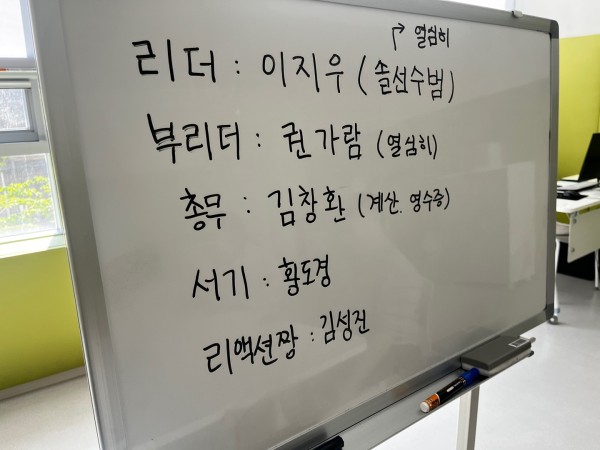 열심히
리더 : 이지우 (솔선수범)
부리더 : 권가람 (열심히)
총무 : 김창환 (계산. 영수증)
서기 : 황도경
리액션짱 : 김성진